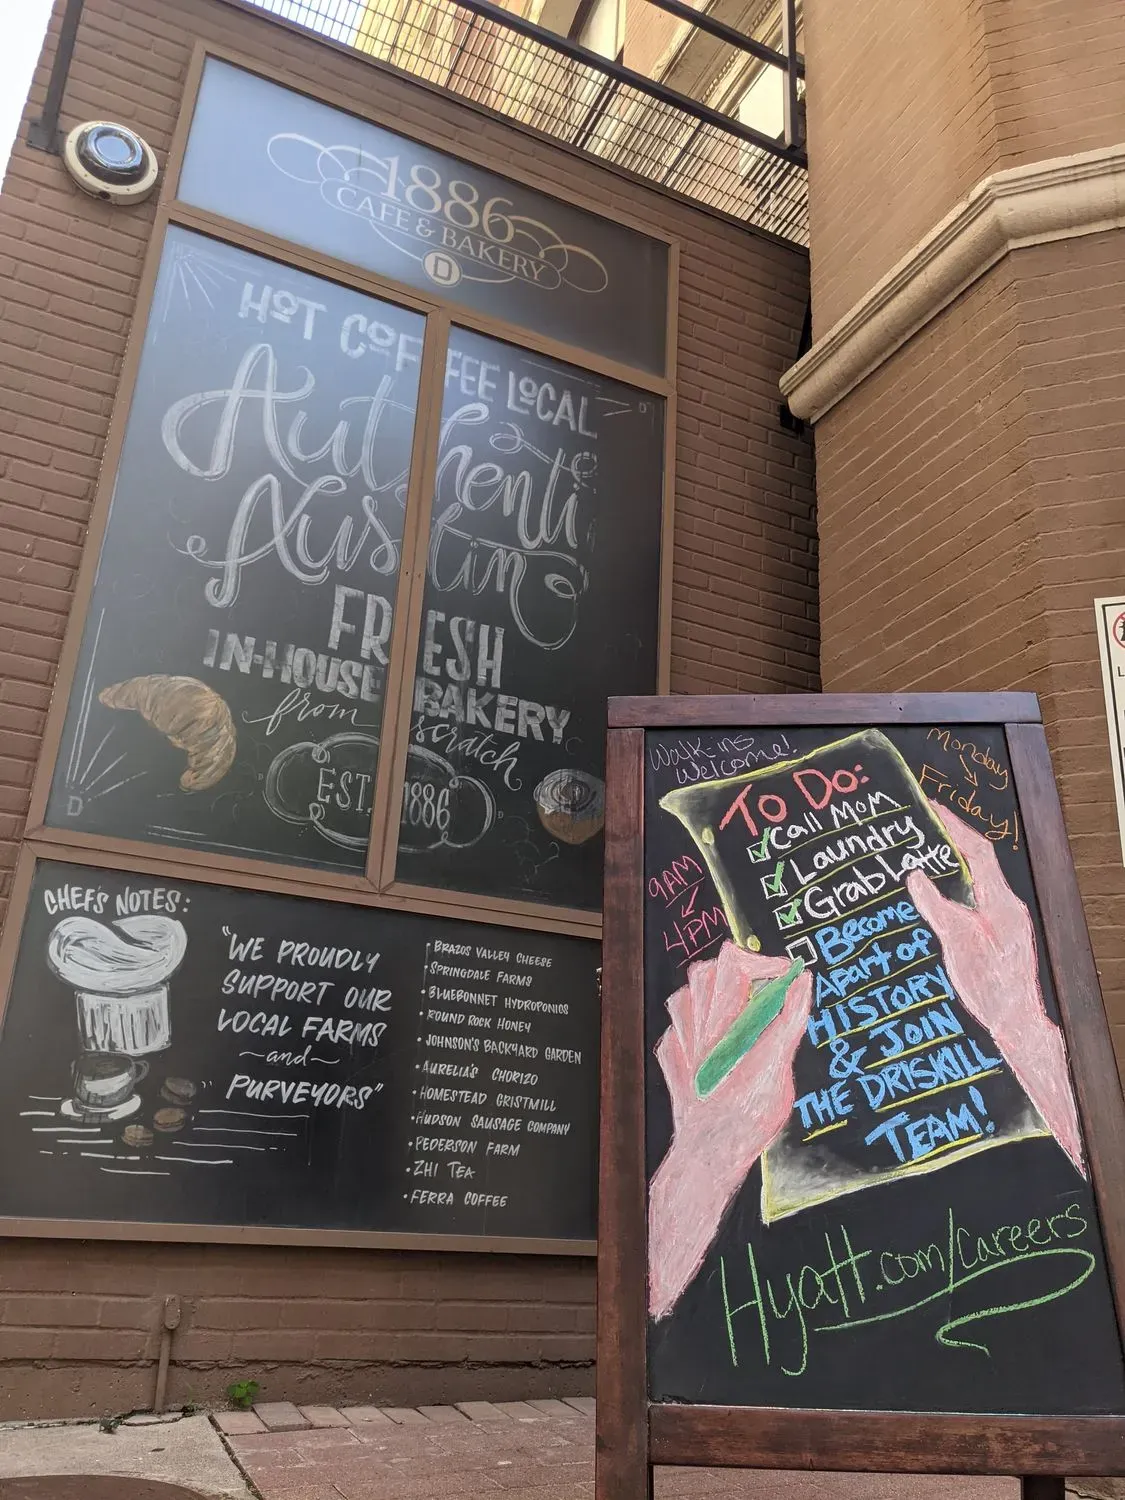 1886
CAFE & BAKERY
D
HOT COFFEE LOCAL
Authentic
Austin
FRESH
IN-HOUSE BAKERY
from scratch
EST. 1886
D
CHEF'S NOTES:
"WE PROUDLY
SUPPORT OUR
LOCAL FARMS
~and~
PURVEYORS"
• BRAZOS VALLEY CHEESE
• SPRINGDALE FARMS
• BLUEBONNET HYDROPONICS
• ROUND ROCK HONEY
• JOHNSON'S BACKYARD GARDEN
• AURELIA'S CHORIZO
• HOMESTEAD GRISTMILL
• HUDSON SAUSAGE COMPANY
• PEDERSON FARM
• ZHI TEA
• FERRA COFFEE
Walk-ins
Welcome!
Monday
↓
Friday!
9AM
↓
4PM
TO DO:
Call MOM
Laundry
Grab Latte
Become
Apart of
HISTORY
& JOIN
THE DRISKILL
TEAM!
Hyatt.com/careers